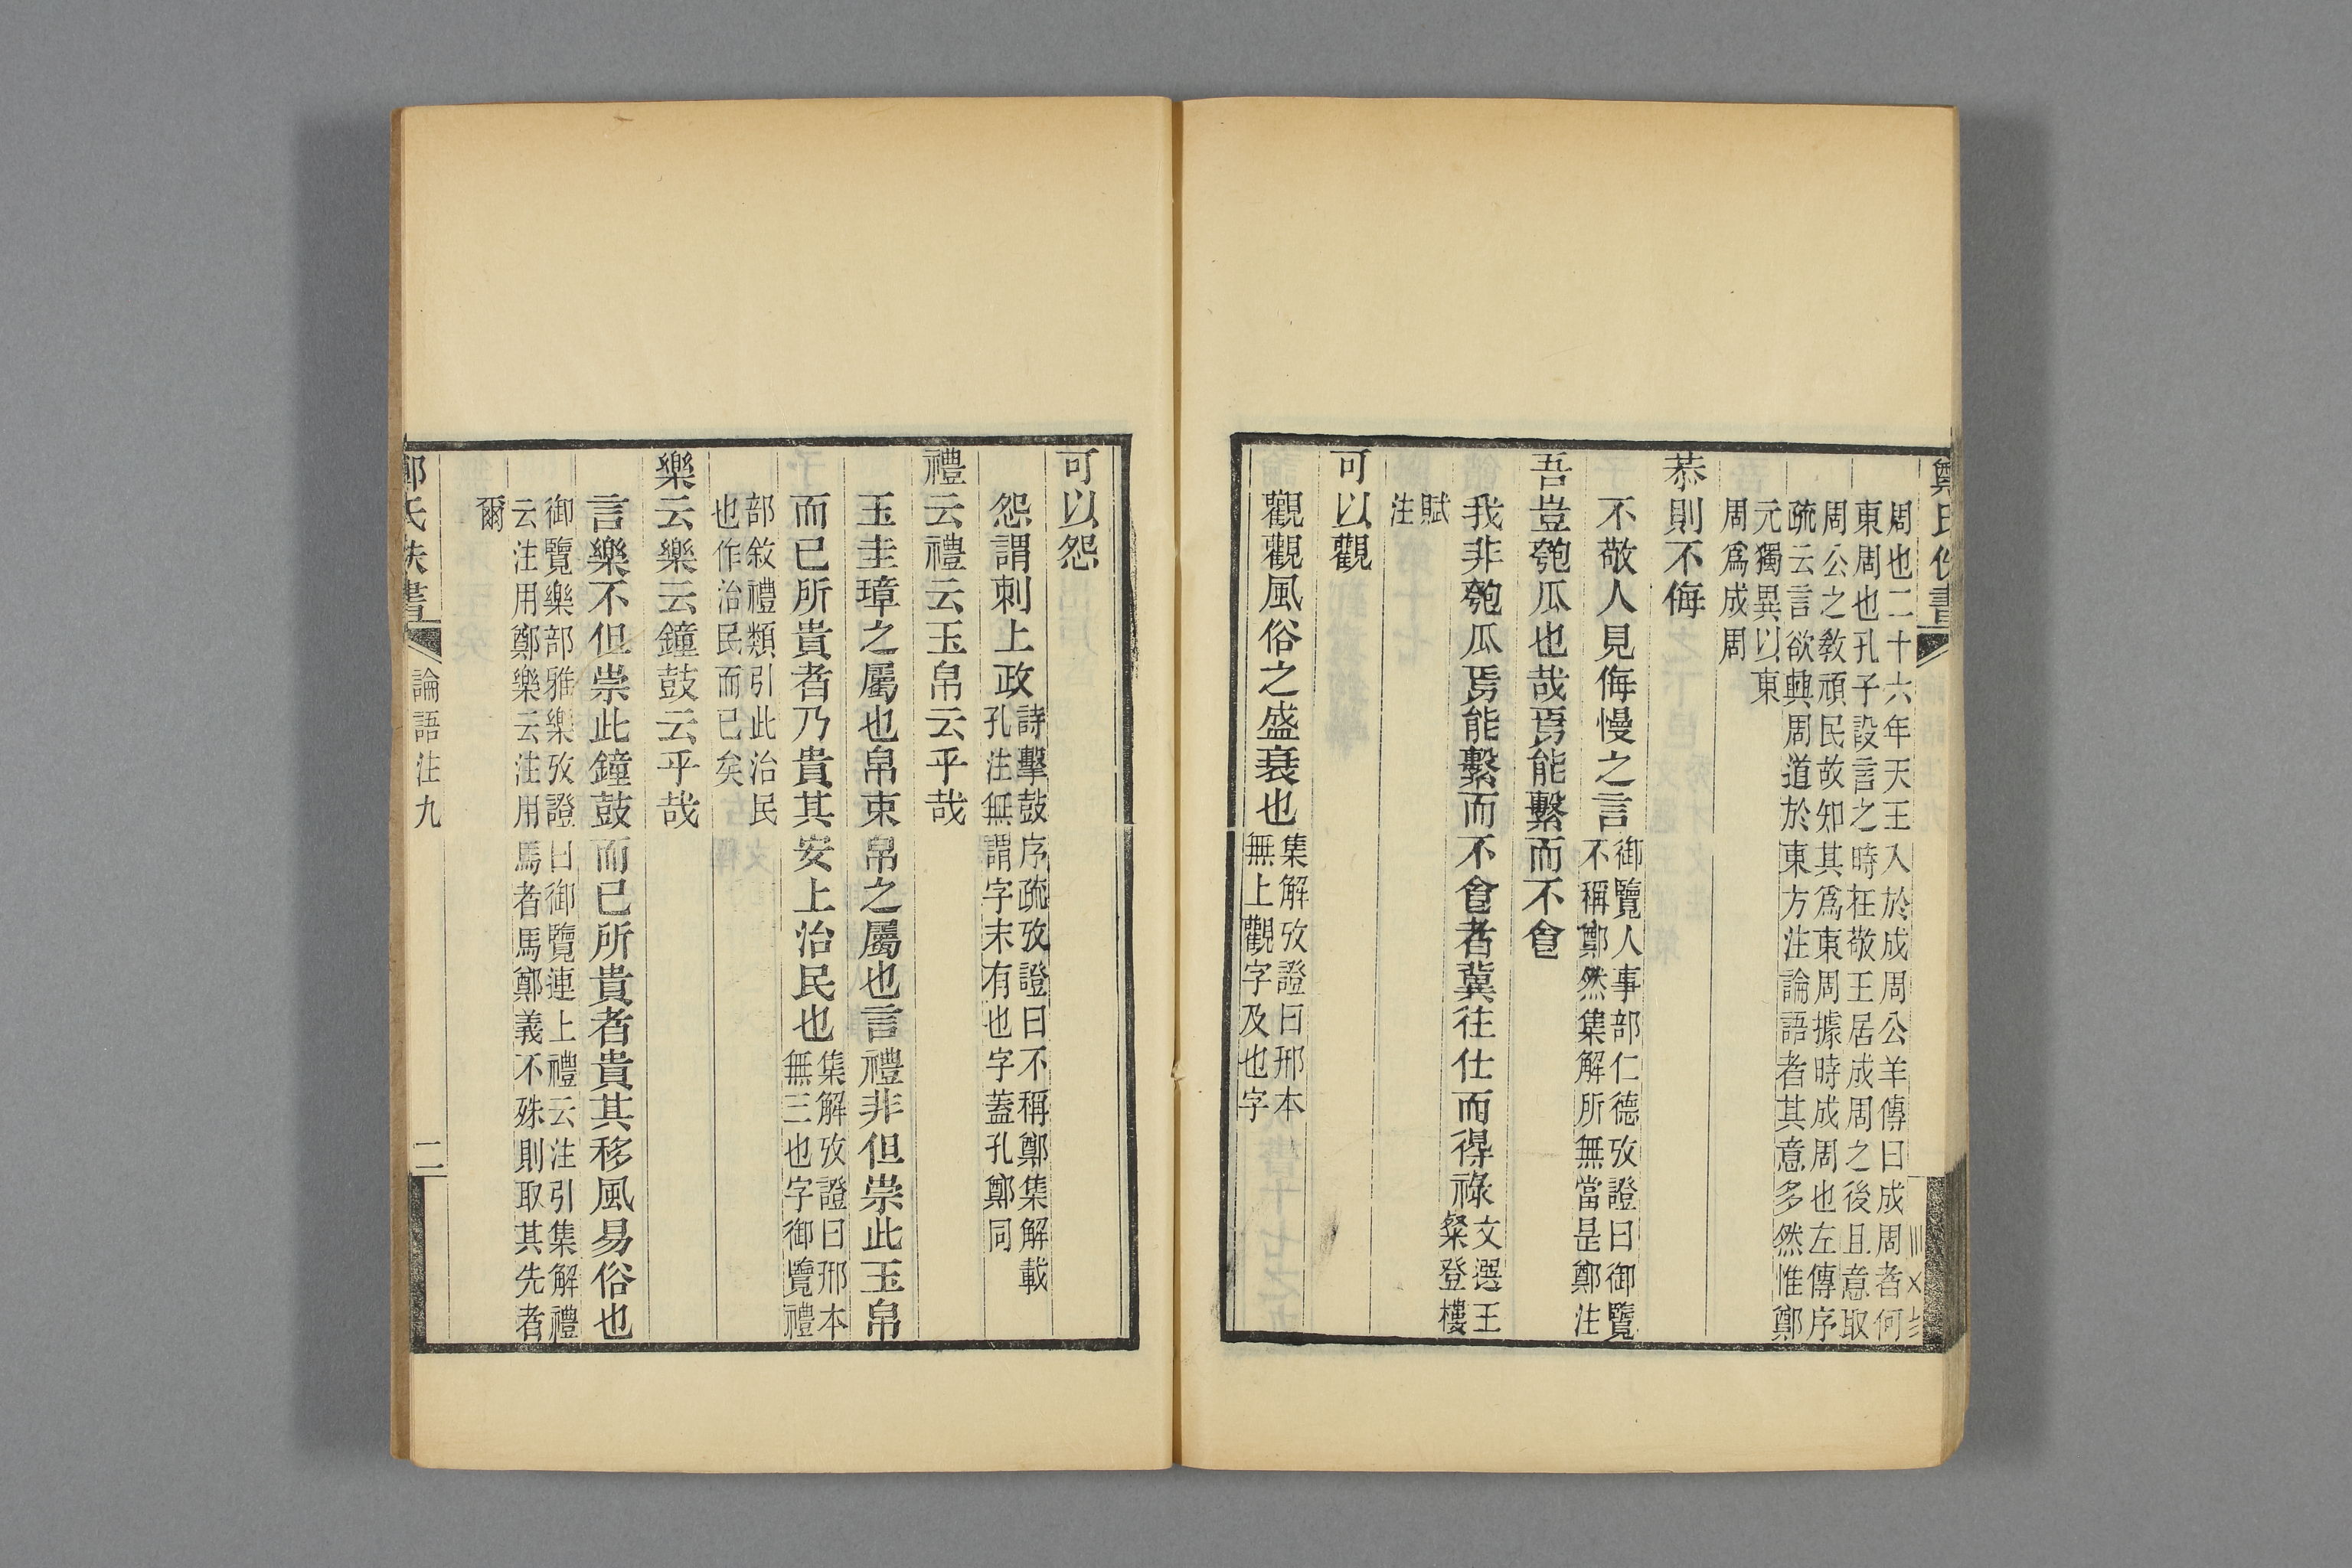 周也二十六年天王入於成周公羊傳曰成周者何
東周也孔子設言之時在敬王居成周之後且意取
周公之敎頑民故知其爲東周據時成周也左傳序
疏云言欲興周道於東方注論語者其意多然惟鄭
元獨異以東
周爲成周
恭則不侮
不敬人見侮慢之言御覽人事部仁德攷證曰御覽
不稱鄭然集解所無當是鄭注
吾豈匏瓜也哉焉能繫而不食
我非匏瓜焉能繫而不食者冀往仕而得祿文選王
粲登樓
賦
注
可以觀
觀觀風俗之盛衰也集解攷證曰邢本
無上觀字及也字
可以怨
怨謂刺上政詩擊鼓序疏攷證曰不稱鄭集解載
孔注無謂字末有也字蓋孔鄭同
禮云禮云玉帛云乎哉
玉圭璋之屬也帛束帛之屬也言禮非但崇此玉帛
而已所貴者乃貴其安上治民也集解攷證曰邢本
無三也字御覽禮
部敘禮類引此治民
也作治民而已矣
樂云樂云鐘鼓云乎哉
言樂不但崇此鐘鼓而已所貴者貴其移風易俗也
御覽樂部雅樂攷證曰御覽連上禮云注引集解禮
云注用鄭樂云注用馬者馬鄭義不殊則取其先者
爾
鄭氏佚書
論語注九
二